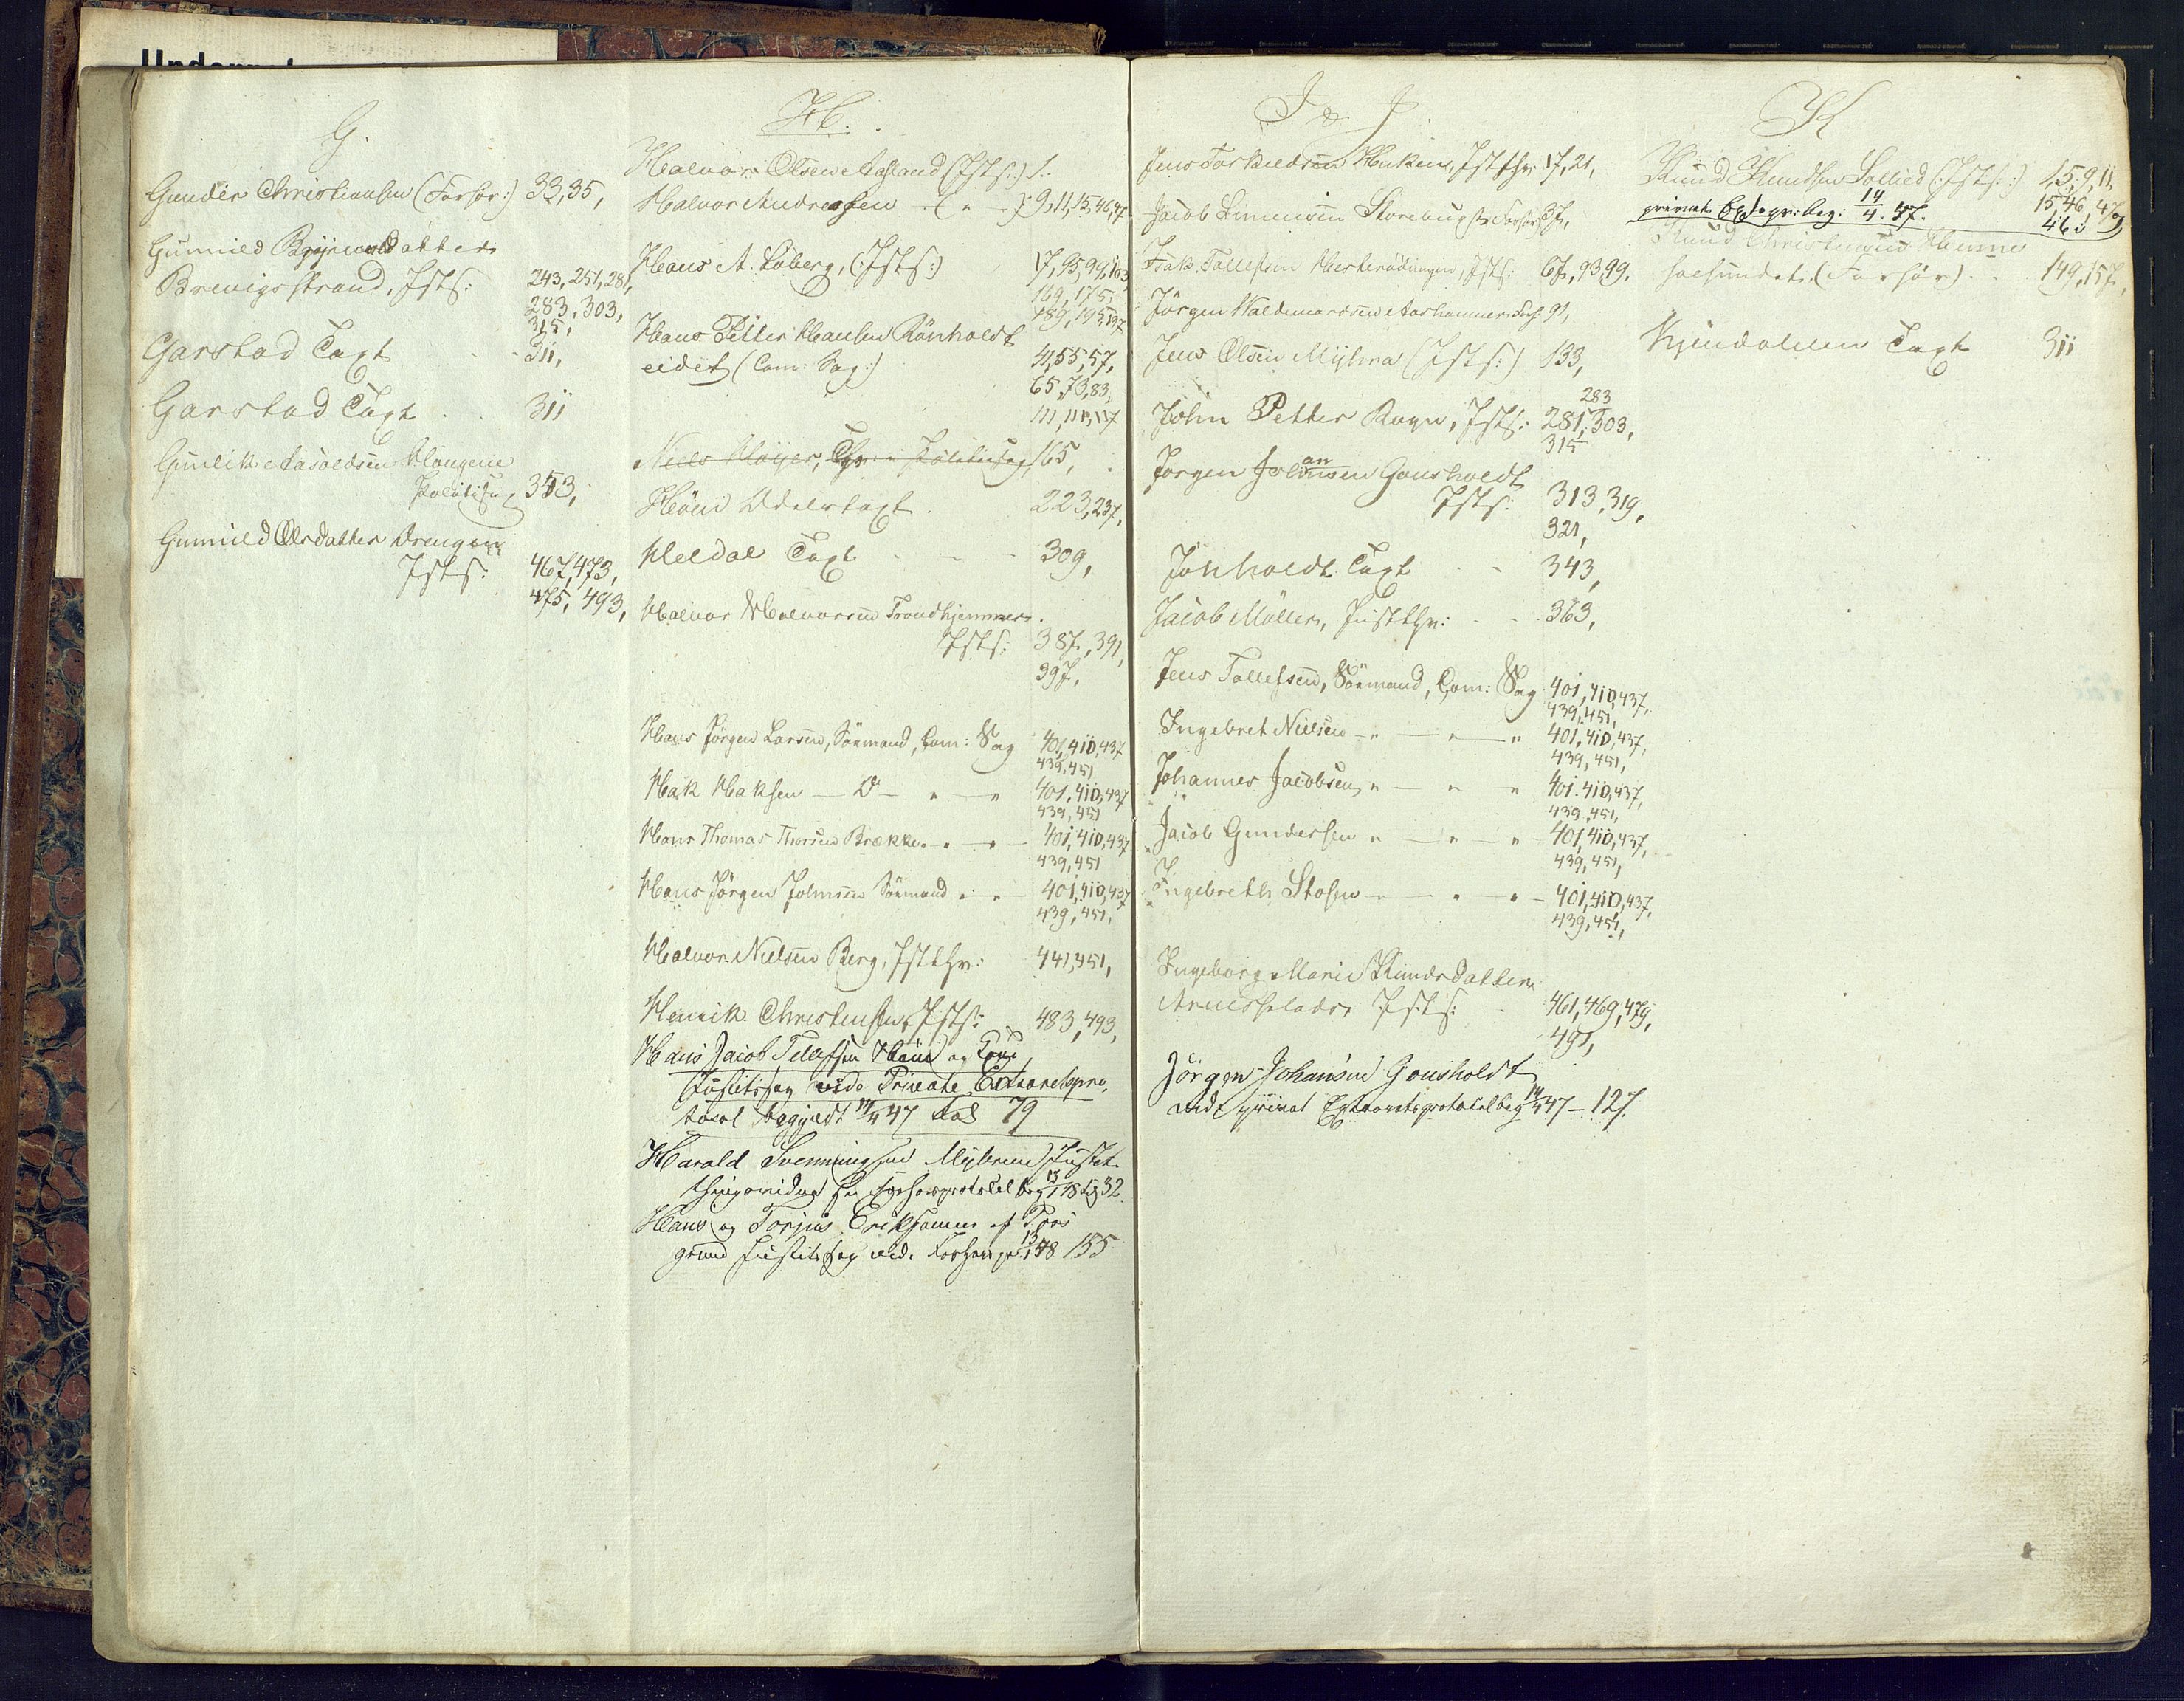 G.
Gunder Christiansen (Forhør:) 33,35,
Gunnild Brynildsdatter
Brevigsstrand, Jsts: 243, 251, 281,
283, 303,
315,
Garstad Taxt 311,
Garstad Taxt 311
Gunlik Aasoldsen
Politisag 353,
Gunnild Olsdatter Drengen
Jsts: 467,473,
475, 493,
H.
Halvor Olsen Aasland (Jsts:) 1.
Halvor Andreasen - ( " - ) 9,11,15,46,47
Hans A. Loberg, (:Jsts:) 17,95,99,103,
169, 175,
189, 195,197
Hans Petter Hansen Rønholdt
eidet (Com: Sag:) 41,55,57,
65,73,83,
111,117
Niels Høyer, Politisag 165,
Høen Odelstaxt 223,237,
Heldal Taxt 309,
Halvor Halvorsen Trondhjemmer.
Jsts: 387, 391,
397,
Hans Jørgen Larsen, Sømand, Com: Sag 401,410,437
439,451
Hak Haksen - D - " - " 401,410,437
439,451
Hans Thomas Thorsen Brække " - " - 401,410,437
439,451
Hans Jørgen Johnsen Sømand " - " - 401,410,437
439,451,
Halvor Nielsen Berg, Jstthv: 441,451,
Henrik Christensen, Jsts: 483,493,
Hans Jacob Tellefsen Høen og Kone
Justitssag vide Private Extraretspro,
tocol begyndt 14/4 47 Fol 79
Harald Svenningsen Myhrene Justits
forhørsprotokol beg 13/1 48 32
Hans og Torjus Eriksønner af Pors
grund Justitssag vide Forhørspr. 13/1 48 155
I & J
Jens Torkildsen Auken, Jstthv: 17,21,
Jacob Simensen Skrebug (Forhør) 37,
Isak Tollefsen Jsts: 67, 93,99.
Jørgen Waldemardsen Aashammer Forh: 91,
Jens Olsen Myhra (Jsts:) 133,
283
John Petter Ragn, Jsts: 281,303,
315
an
Jørgen Johnsen Gonsholdt
Jsts: 313,319,
321,
Jønholdt Taxt 343,
Jacob Møller, Justthv: 363,
Jens Tollefsen, Sømand, Com: Sag 401,410,437,
439,451,
Ingebret Nielsen - " - " - " 401,410,437,
439,451,
Johannes Jacobsen, " - " " 401,410,437,
439,451,
Jacob Gundersen " - " - " - 401,410,437,
439,451,
Ingebreth Olsen - " - " " - 401,410,437,
439,451,
Ingeborg Marie Knudsdatter
Jsts: 461,469,479,
491,
Jørgen Johansen Gonsholdt
vide privat Extraretsprotokol beg 14/4 47 - 127.
K
Knud Knudsen Sollied (:Jsts:) 1,5,9,11,
15,46,47,
private Extrpr: beg: 14/4. 47. 46
Knud Christensen
(Forhør) 149,157,
Kjendalen Taxt 311